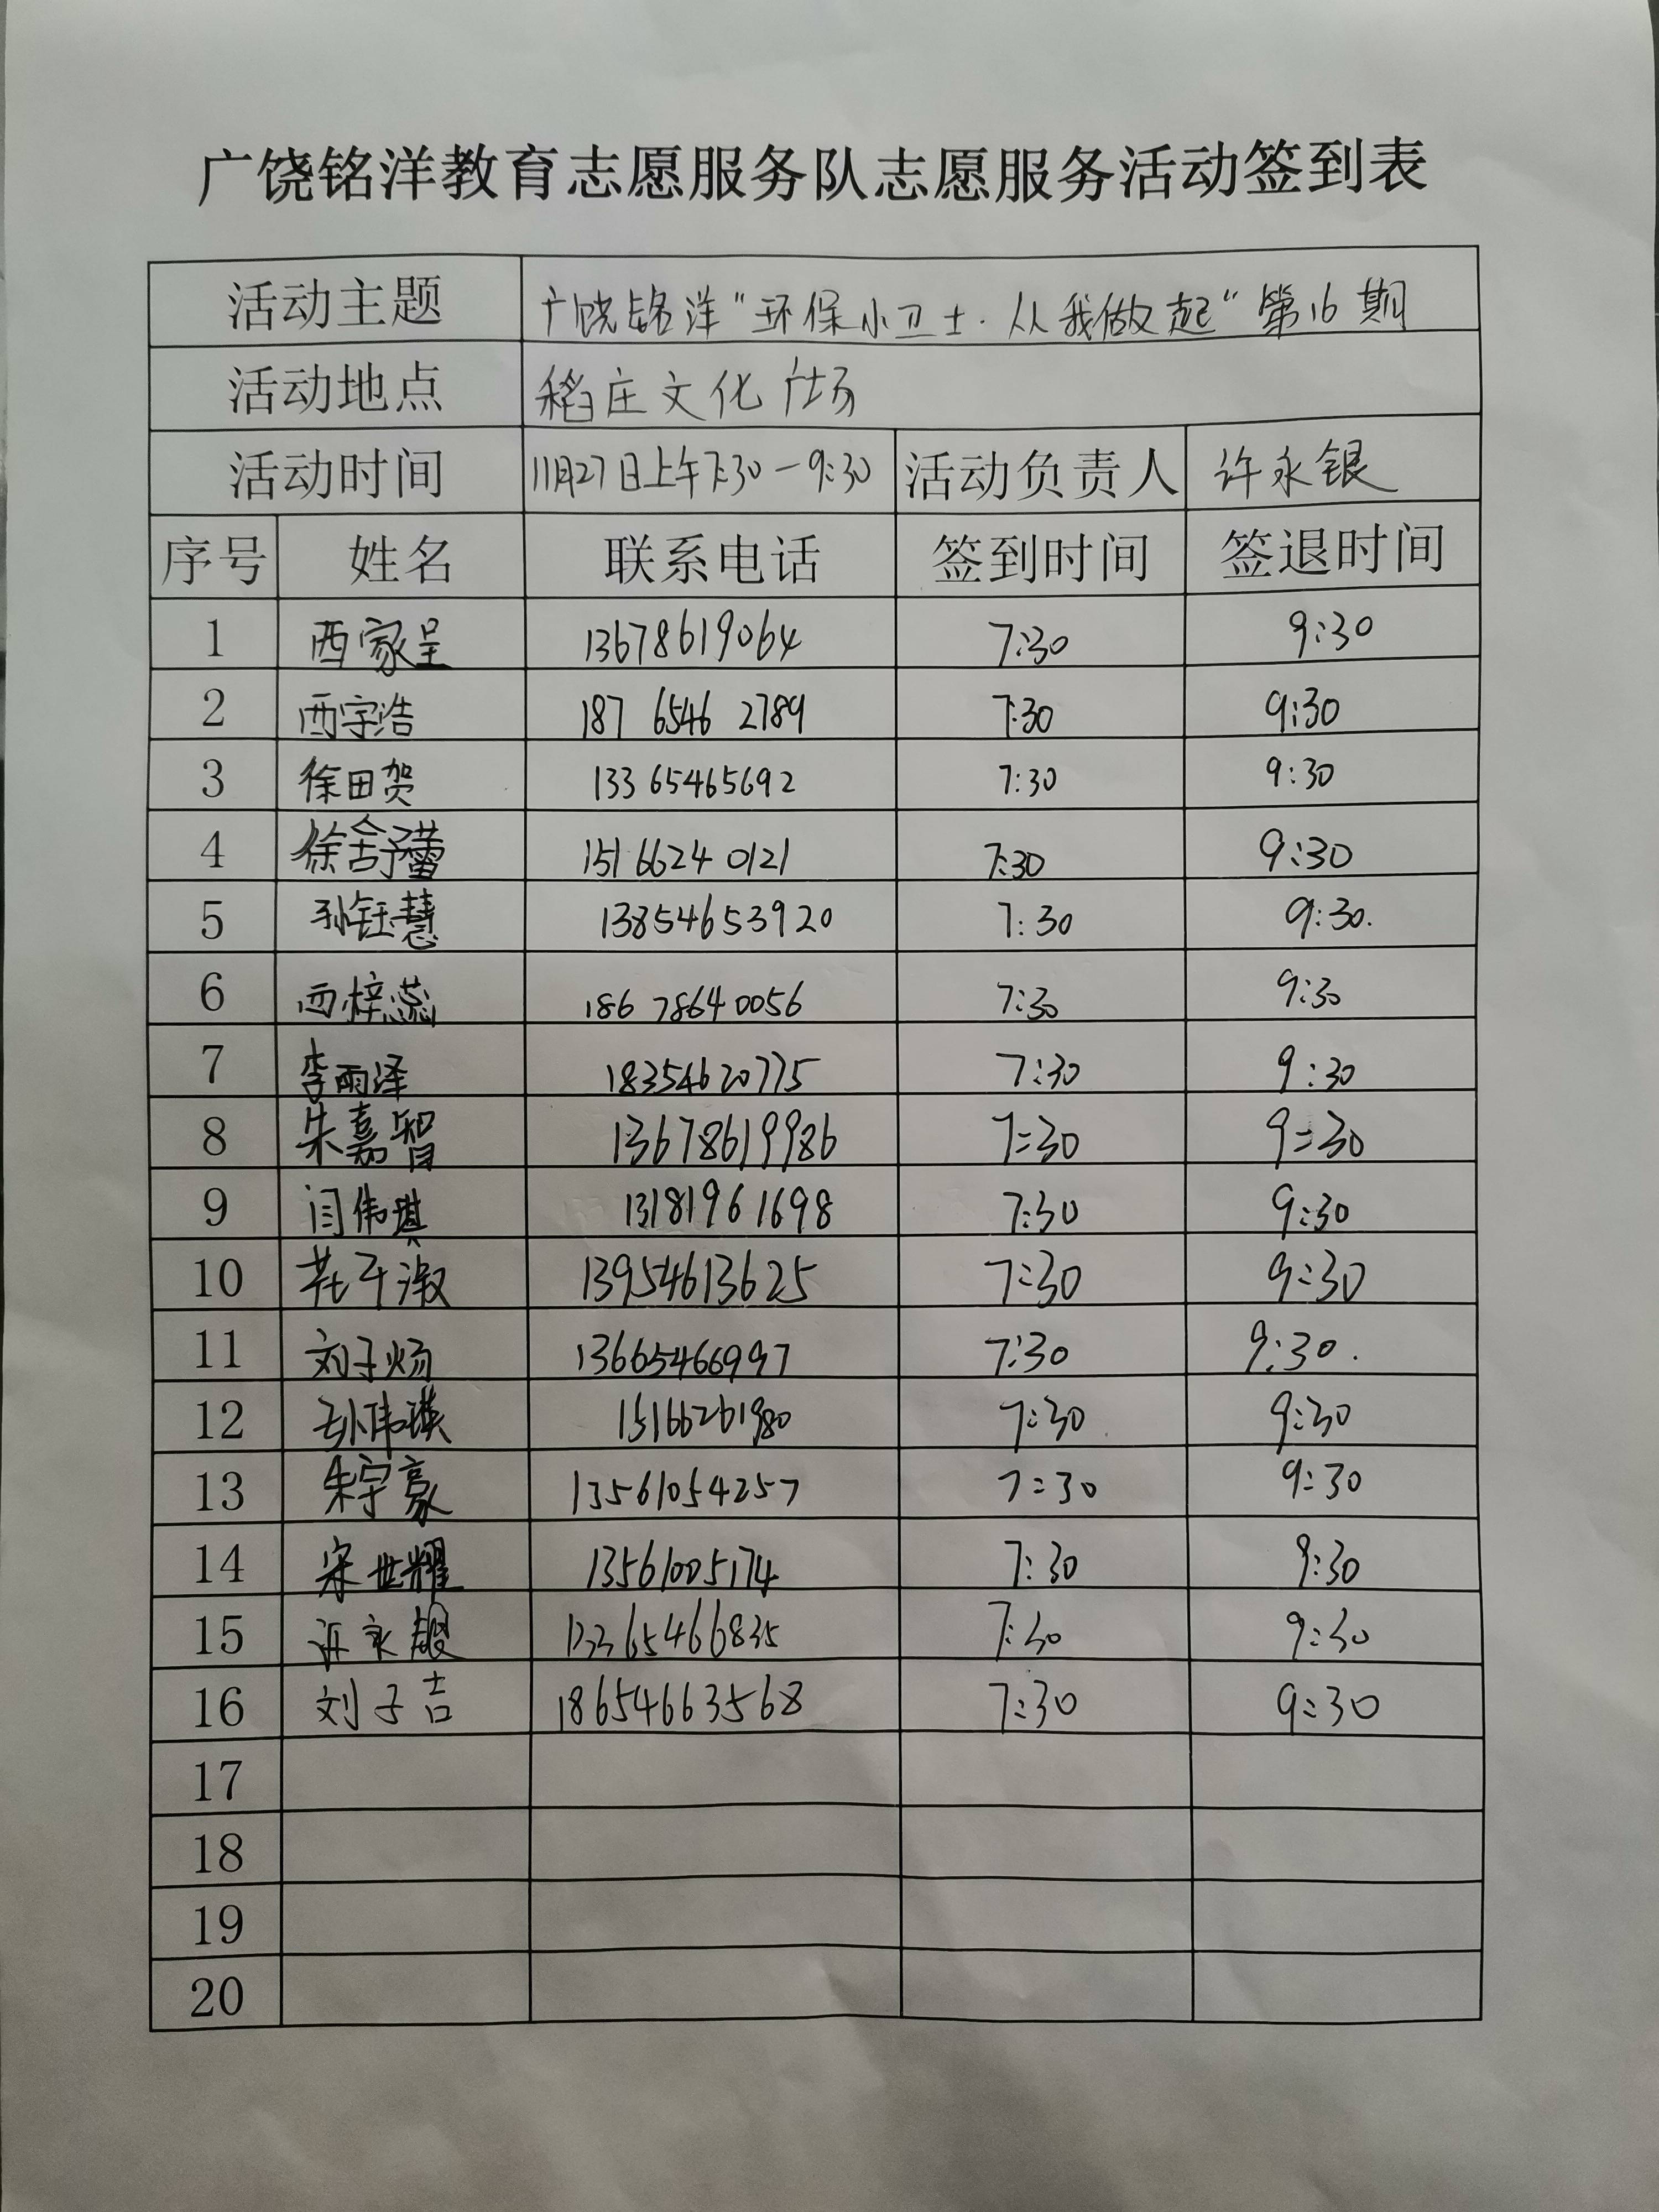 广饶铭洋教育志愿服务队志愿服务活动签到表
活动主题 广饶铭洋“环保小卫士·从我做起”第16期
活动地点 稻庄文化广场
活动时间 11月27日上午7:30-9:30 活动负责人 许永银
序号 姓名 联系电话 签到时间 签退时间
1 西家呈 13678619064 7:30 9:30
2 西宇浩 187 6546 2789 7:30 9:30
3 徐田贺 133 65465692 7:30 9:30
4 徐舒蕾 1516624 0121 7:30 9:30
5 孙钰慧 13854653920 7:30 9:30.
6 西梓蕊 186 7864 0056 7:30 9:30
7 李雨泽 18354620775 7:30 9:30
8 朱嘉智 13678619986 7:30 9:30
9 闫伟琪 13181961698 7:30 9:30
10 13954613625 7:30 9:30
11 刘子炀 13665466997 7:30 9:30.
12 孙伟瑛 15166261980 7:30 9:30
13 朱宇豪 13561054257 7:30 9:30
14 宋世耀 13561005174 7:30 9:30
15 许永银 13365466835 7:30 9:30
16 刘子吉 18654663568 7:30 9:30
17
18
19
20